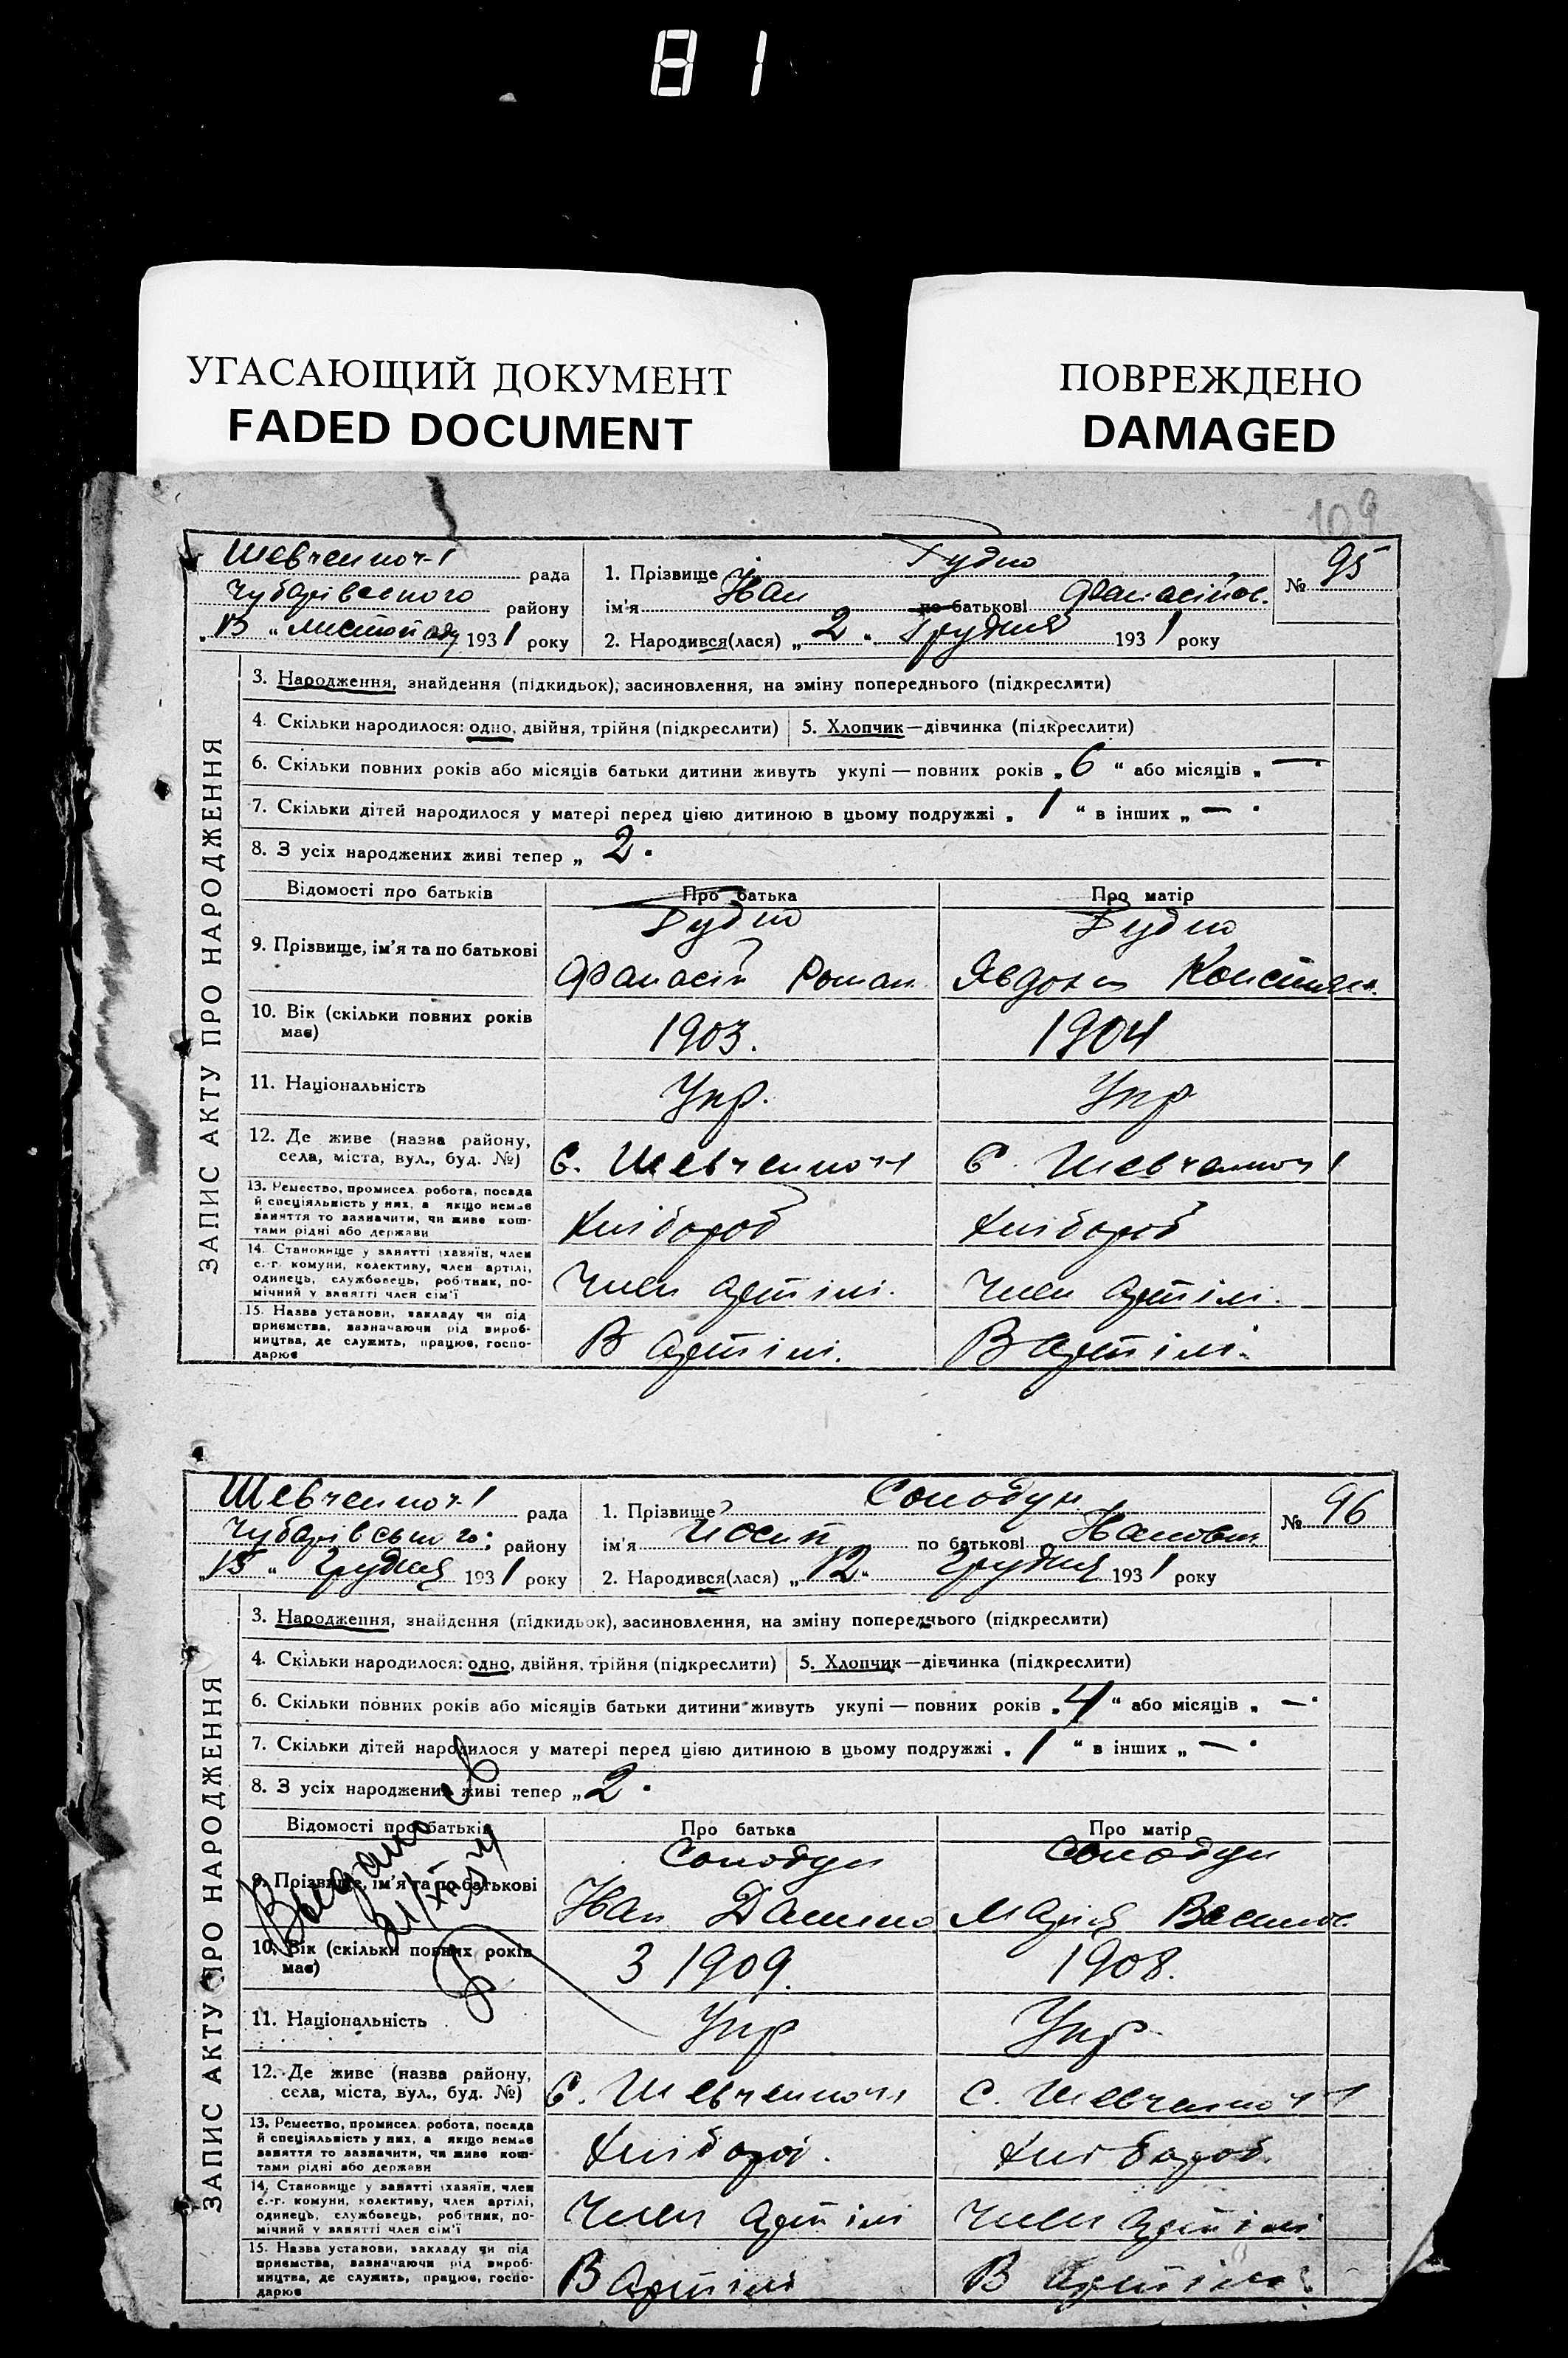 81
УГАСАЮЩИЙ ДОКУМЕНТ
FADED DOCUMENT
ПОВРЕЖДЕНО
DAMAGED
109
Шевченноч-1 рада
Чубарівського району
„15 “ листопаду 1931 року
1. Прізвище Гудно
ім'я Іван по батькові Афанасійов.
2. Народився(лася) „ 2 “ Грудня 1931 року
№ 95
ЗАПИС АКТУ ПРО НАРОДЖЕННЯ
3. Народження, знайдення (підкидьок), засиновлення, на зміну попереднього (підкреслити)
4. Скільки народилося: одно, двійня, трійня (підкреслити) 5. Хлопчик—дівчинка (підкреслити)
6. Скільки повних років або місяців батьки дитини живуть укупі — повних років „ 6 “ або місяців „ — “
7. Скільки дітей народилося у матері перед цією дитиною в цьому подружжі „ 1 “ в інших „ — “
8. З усіх народжених живі тепер „ 2 “
Відомості про батьків Про батька Про матір
9. Прізвище, ім'я та по батькові
Гудно Гудно
Афанасій Роман. Явдоха Констян.
10. Вік (скільки повних років має) 1903. 1904
11. Національність Укр. Укр
12. Де живе (назва району, села, міста, вул., буд. №) С. Шевченноч1 С. Шевченноч1
13. Ремество, промисел. робота, посада
й спеціяльність у них, а якщо немає
заняття то зазначити, чи живе кош-
тами рідні або держави
Хлібороб Хлібороб
14. Становище у занятті (хазяїн, член
с.-г. комуни, колективу, член артілі,
одинець, службовець, робітник, по-
мічний у занятті член сім'ї
Член артілі. Член артілі.
15. Назва установи, закладу чи під
приємства, зазначаючи рід вироб-
ництва, де служить, працює, госпо-
дарює
В артілі. В артілі.
Шевченноч-1 рада
Чубарівського: району
„15 “ Грудня 1931 року
1. Прізвище Солодун
ім'я Йосип по батькові Іванович
2. Народився(лася) „ 12 “ Грудня 1931 року
№ 96
ЗАПИС АКТУ ПРО НАРОДЖЕННЯ
3. Народження, знайдення (підкидьок), засиновлення, на зміну попереднього (підкреслити)
4. Скільки народилося: одно, двійня, трійня (підкреслити) 5. Хлопчик—дівчинка (підкреслити)
6. Скільки повних років або місяців батьки дитини живуть укупі — повних років „ 4 “ або місяців „ — “
7. Скільки дітей народилося у матері перед цією дитиною в цьому подружжі „ 1 “ в інших „ — “
8. З усіх народжених живі тепер „ 2 “
Відомості про батьків Про батька Про матір
9. Прізвище, ім'я та по батькові
Солодун Солодун
Іван Данило Марія Василов.
Выдано
10. Вік (скільки повних років має) З 1909. 1908.
11. Національність Укр Укр
12. Де живе (назва району, села, міста, вул., буд. №) С. Шевченноч1 С. Шевченноч1
13. Ремество, промисел. робота, посада
й спеціяльність у них, а якщо немає
заняття то зазначити, чи живе кош-
тами рідні або держави
Хлібороб. Хлібороб.
14. Становище у занятті (хазяїн, член
с.-г. комуни, колективу, член артілі,
одинець, службовець, робітник, по-
мічний у занятті член сім'ї
Член артілі Член артілі
15. Назва установи, закладу чи під
приємства, зазначаючи рід вироб-
ництва, де служить, працює, госпо-
дарює
В артілі В артілі